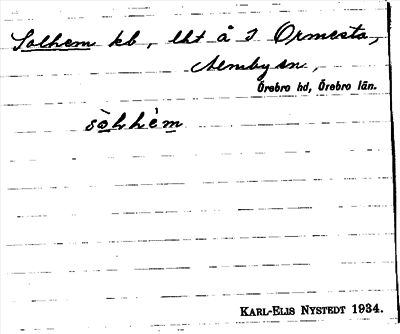 Solhem kb, lht å 3 Ormesta,
Almby sn,
Örebro hd, Örebro län.
KARL-ELIS NYSTEDT 1934.